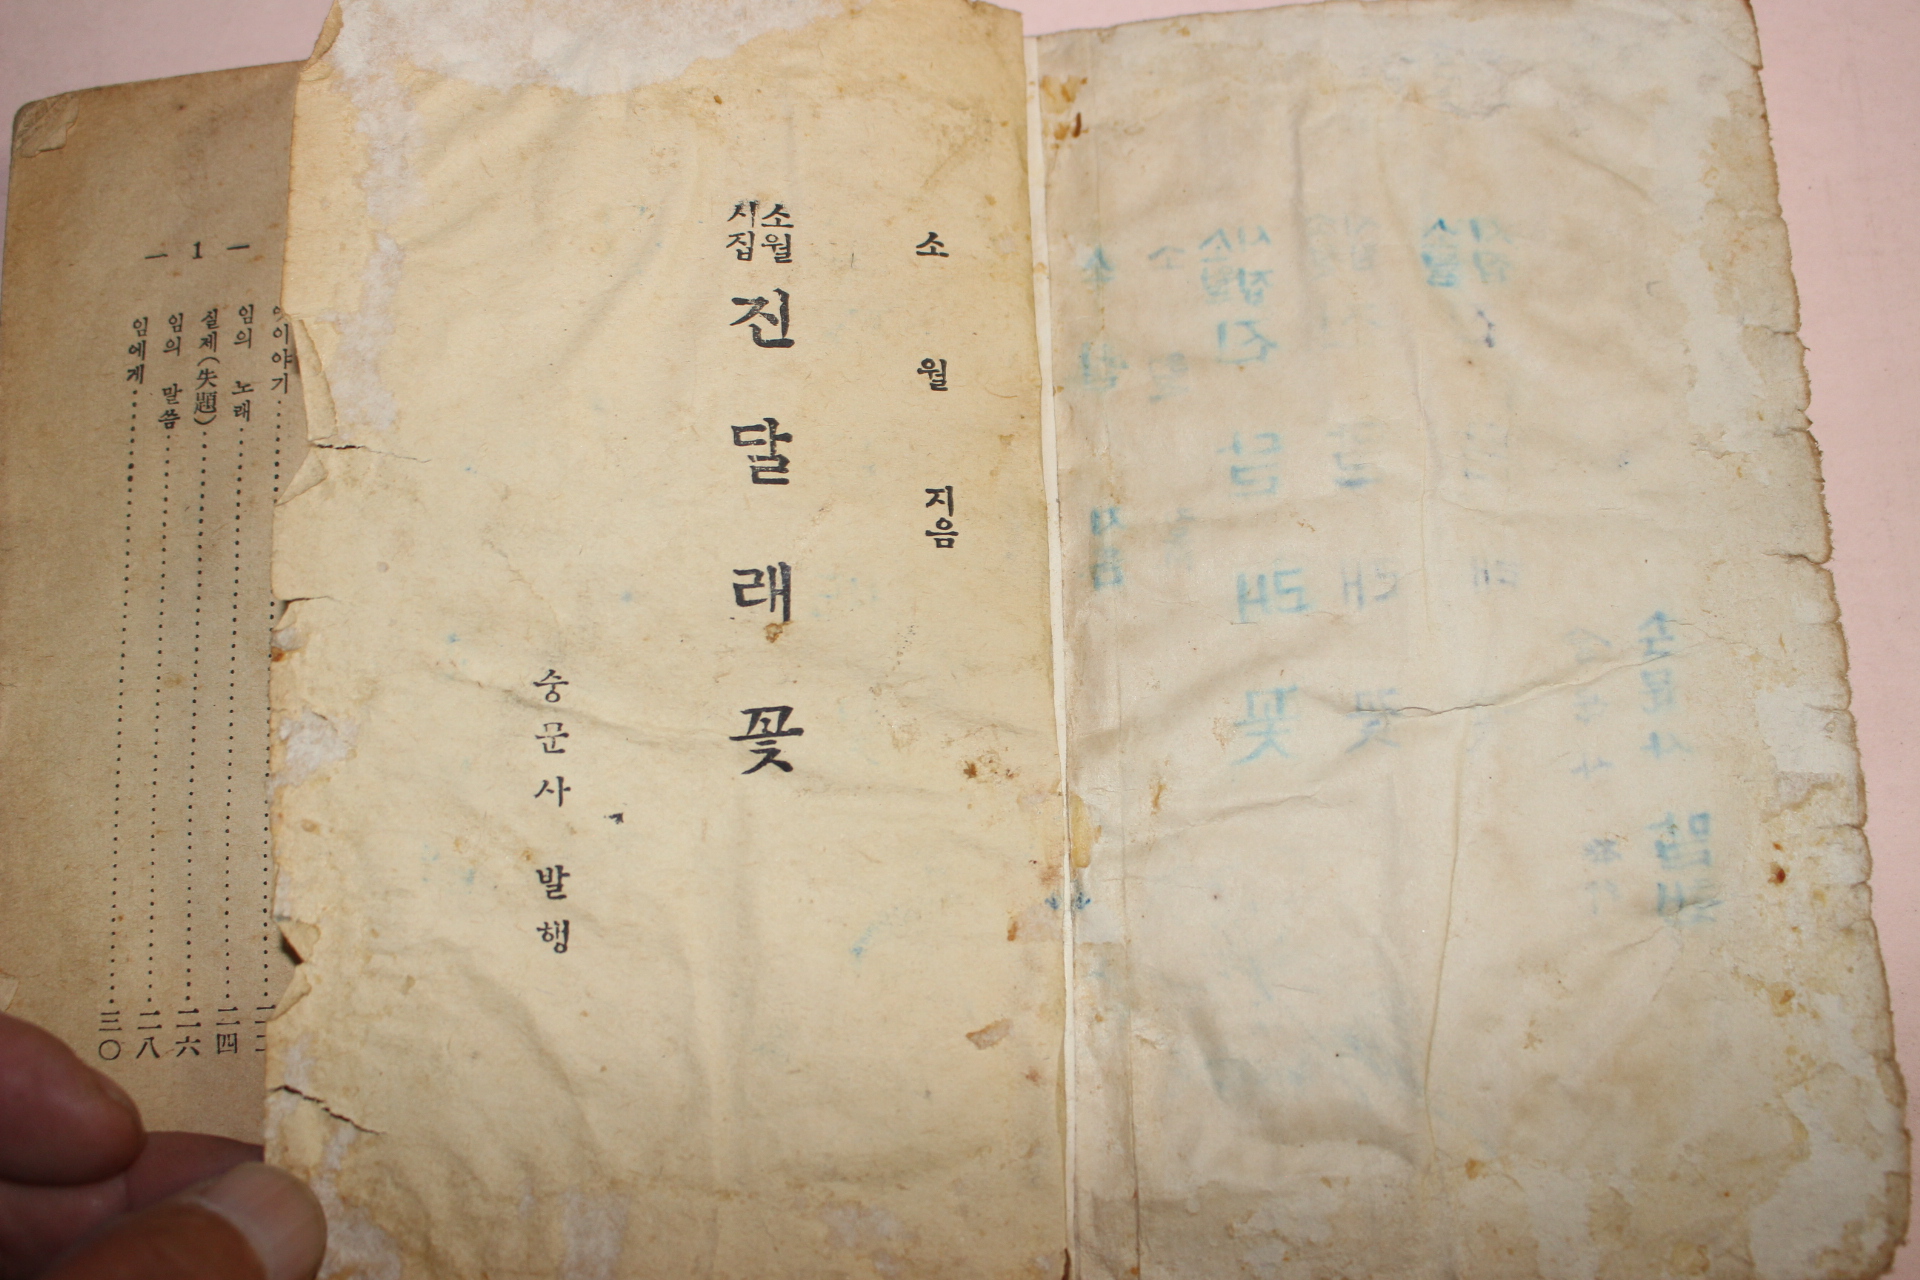 소월 지음
소월시집 진달래꽃
숭문사 발행
이야기
임의 노래 ································ 二四
실제(失題) ································ 二六
임의 말씀 ································ 二八
임에게 ································ 三〇
— 1 —